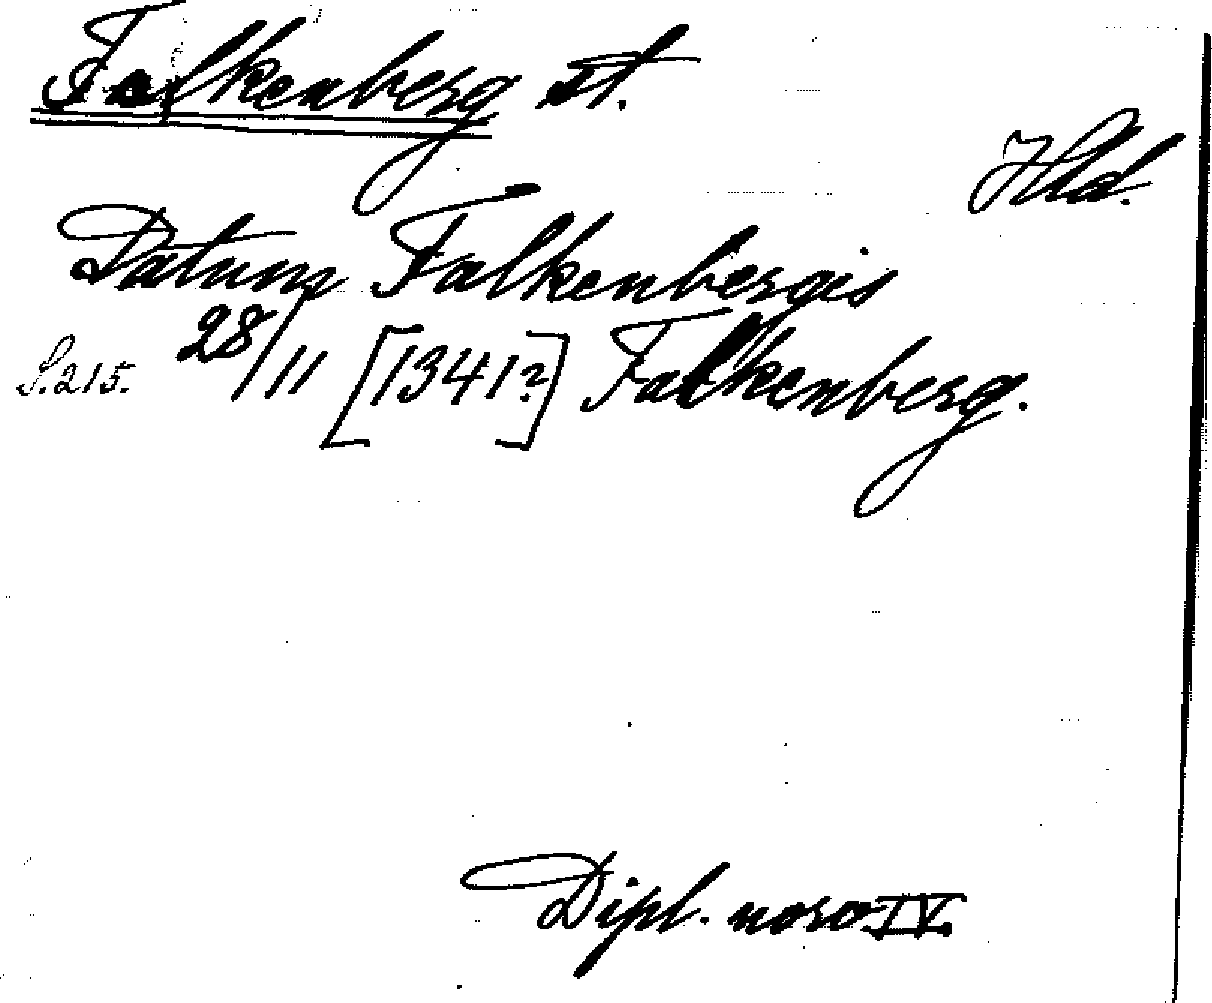 Falkenberg st.
Hld.
Datum Falkenbergis
S. 215. 28/11 [1341?] Falkenberg.
Dipl. norv. IV.